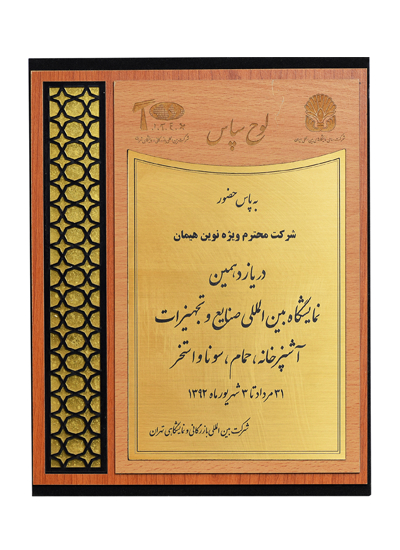 لوح سپاس
به پاس حضور
شرکت محترم ویژه نوین هیمان
در یازدهمین
نمایشگاه بین المللی صنایع و تجهیزات
آشپزخانه، حمام، سونا و استخر
۳۱ مرداد تا ۳ شهریور ماه ۱۳۹۲
شرکت بین المللی بازرگانی و نمایشگاهی تهران